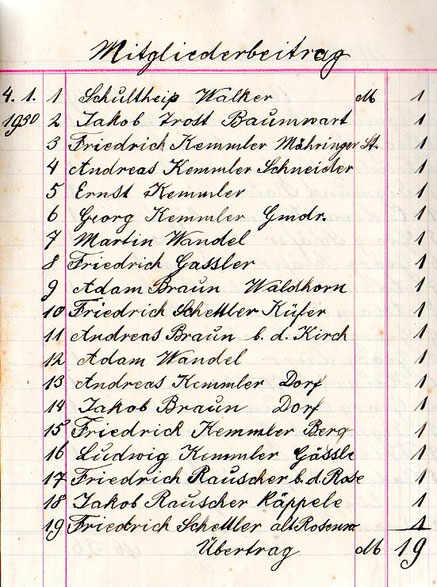 Mitgliederbeitrag
4. 1. 1 Schultheiß Walker M 1
1930 2 Jakob Trost Baumwart 1
3 Friedrich Kemmler Mähringer St. 1
4 Andreas Kemmler Schneider 1
5 Ernst Kemmler 1
6 Georg Kemmler Gmdr. 1
7 Martin Wandel 1
8 Friedrich Gassler 1
9 Adam Braun Waldhorn 1
10 Friedrich Schettler Küfer 1
11 Andreas Braun b. d. Kirch 1
12 Adam Wandel 1
13 Andreas Kemmler Dorf 1
14 Jakob Braun Dorf 1
15 Friedrich Kemmler Berg 1
16 Ludwig Kemmler Gässle 1
17 Friedrich Rauscher b. d. Rose 1
18 Jakob Rauscher Käppele 1
19 Friedrich Schettler alt 1
Übertrag M 19